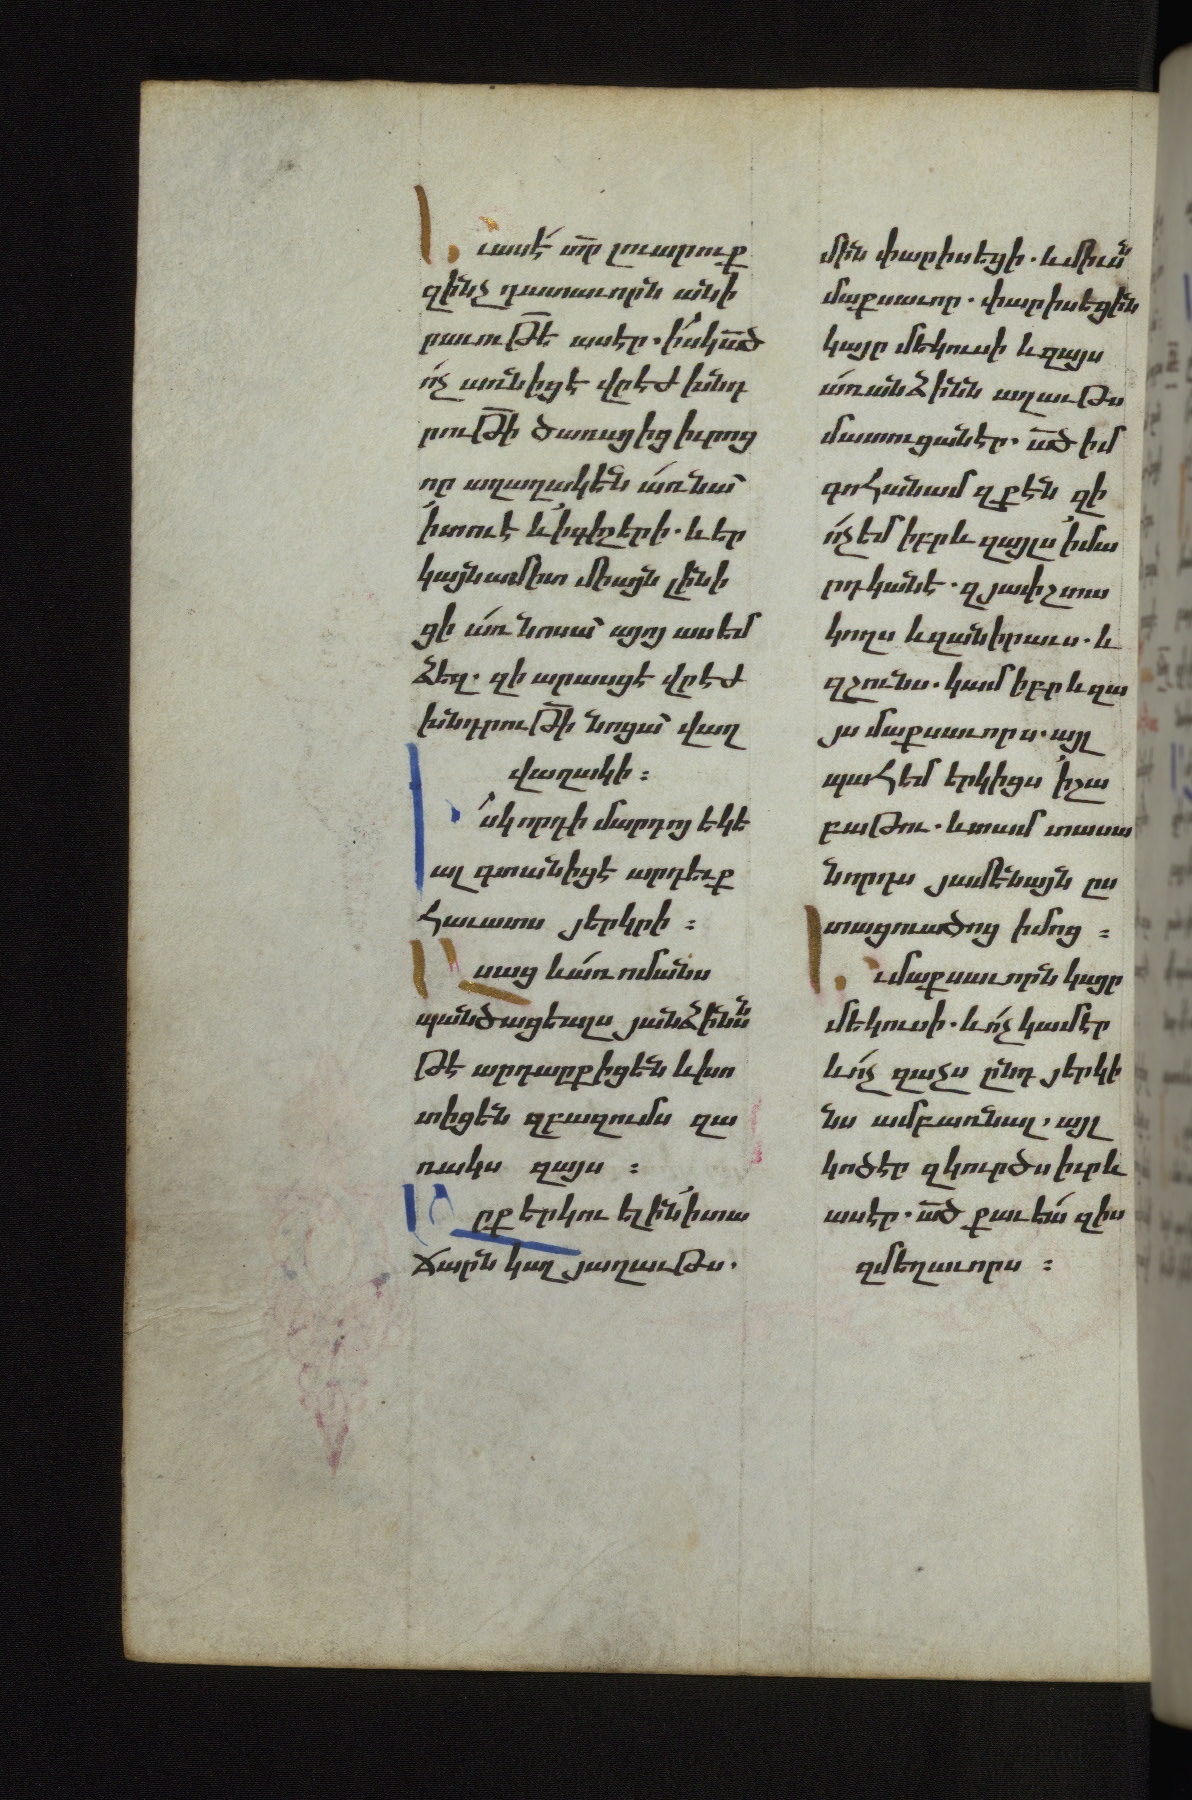 Եւ ասէ տր լուարուք
զինչ դատաւորն անի
րաւութե ասէր. իսկ ած
ոչ առնիցէ վրէժ խնդ
րութի ծառայից իւրոց
որ աղաղակեն առ նա՝
ի տուէ և ի գիշերի. և եր
կայնամիտ միայն լինի
ցի առ նոսա՝ այոյ ասեմ
ձեզ. զի արասցէ վրէժ
խնդրութի նոցա՝ վաղ
վաղակի ։
Իսկ որդի մարդոյ եկե
ալ գտանիցէ արդեւք
հաւատս յերկրի ։
Ասաց և առ ոմանս
պանծացեալս յանձինս
թէ արդարք իցեն և խո
տիցեն զբազումս զա
ռակս զայս ։
Արք երկու ելին ի տա
ճարն կալ յաղաւթս.
մին փարիսեցի. և միւսն
մաքսաւոր. փարիսեցին
կայր մեկուսի և զայս
առանձինն աղաւթս
մատուցանէր. ած իմ
գոհանամ զքէն զի
ոչ եմ իբրև զայլս ի մա
րդկանէ. զյափշտա
կողս և զանիրաւս. և
զշունս. կամ իբրև զա
յս մաքսաւորս. այլ
պահեմ երկիցս ի շա
բաթու. և տամ տասա
նորդս յամենայն ըս
տացուածոց իմոց ։
Եւ մաքսաւորն կայր
մեկուսի. և ոչ կամէր
և ոչ զաչս ընդ յերկի
նս ամբառնալ, այլ
կոծէր զկուրծս իւր և
ասէր. ած քաւեա զիս
զմեղաւորս ։